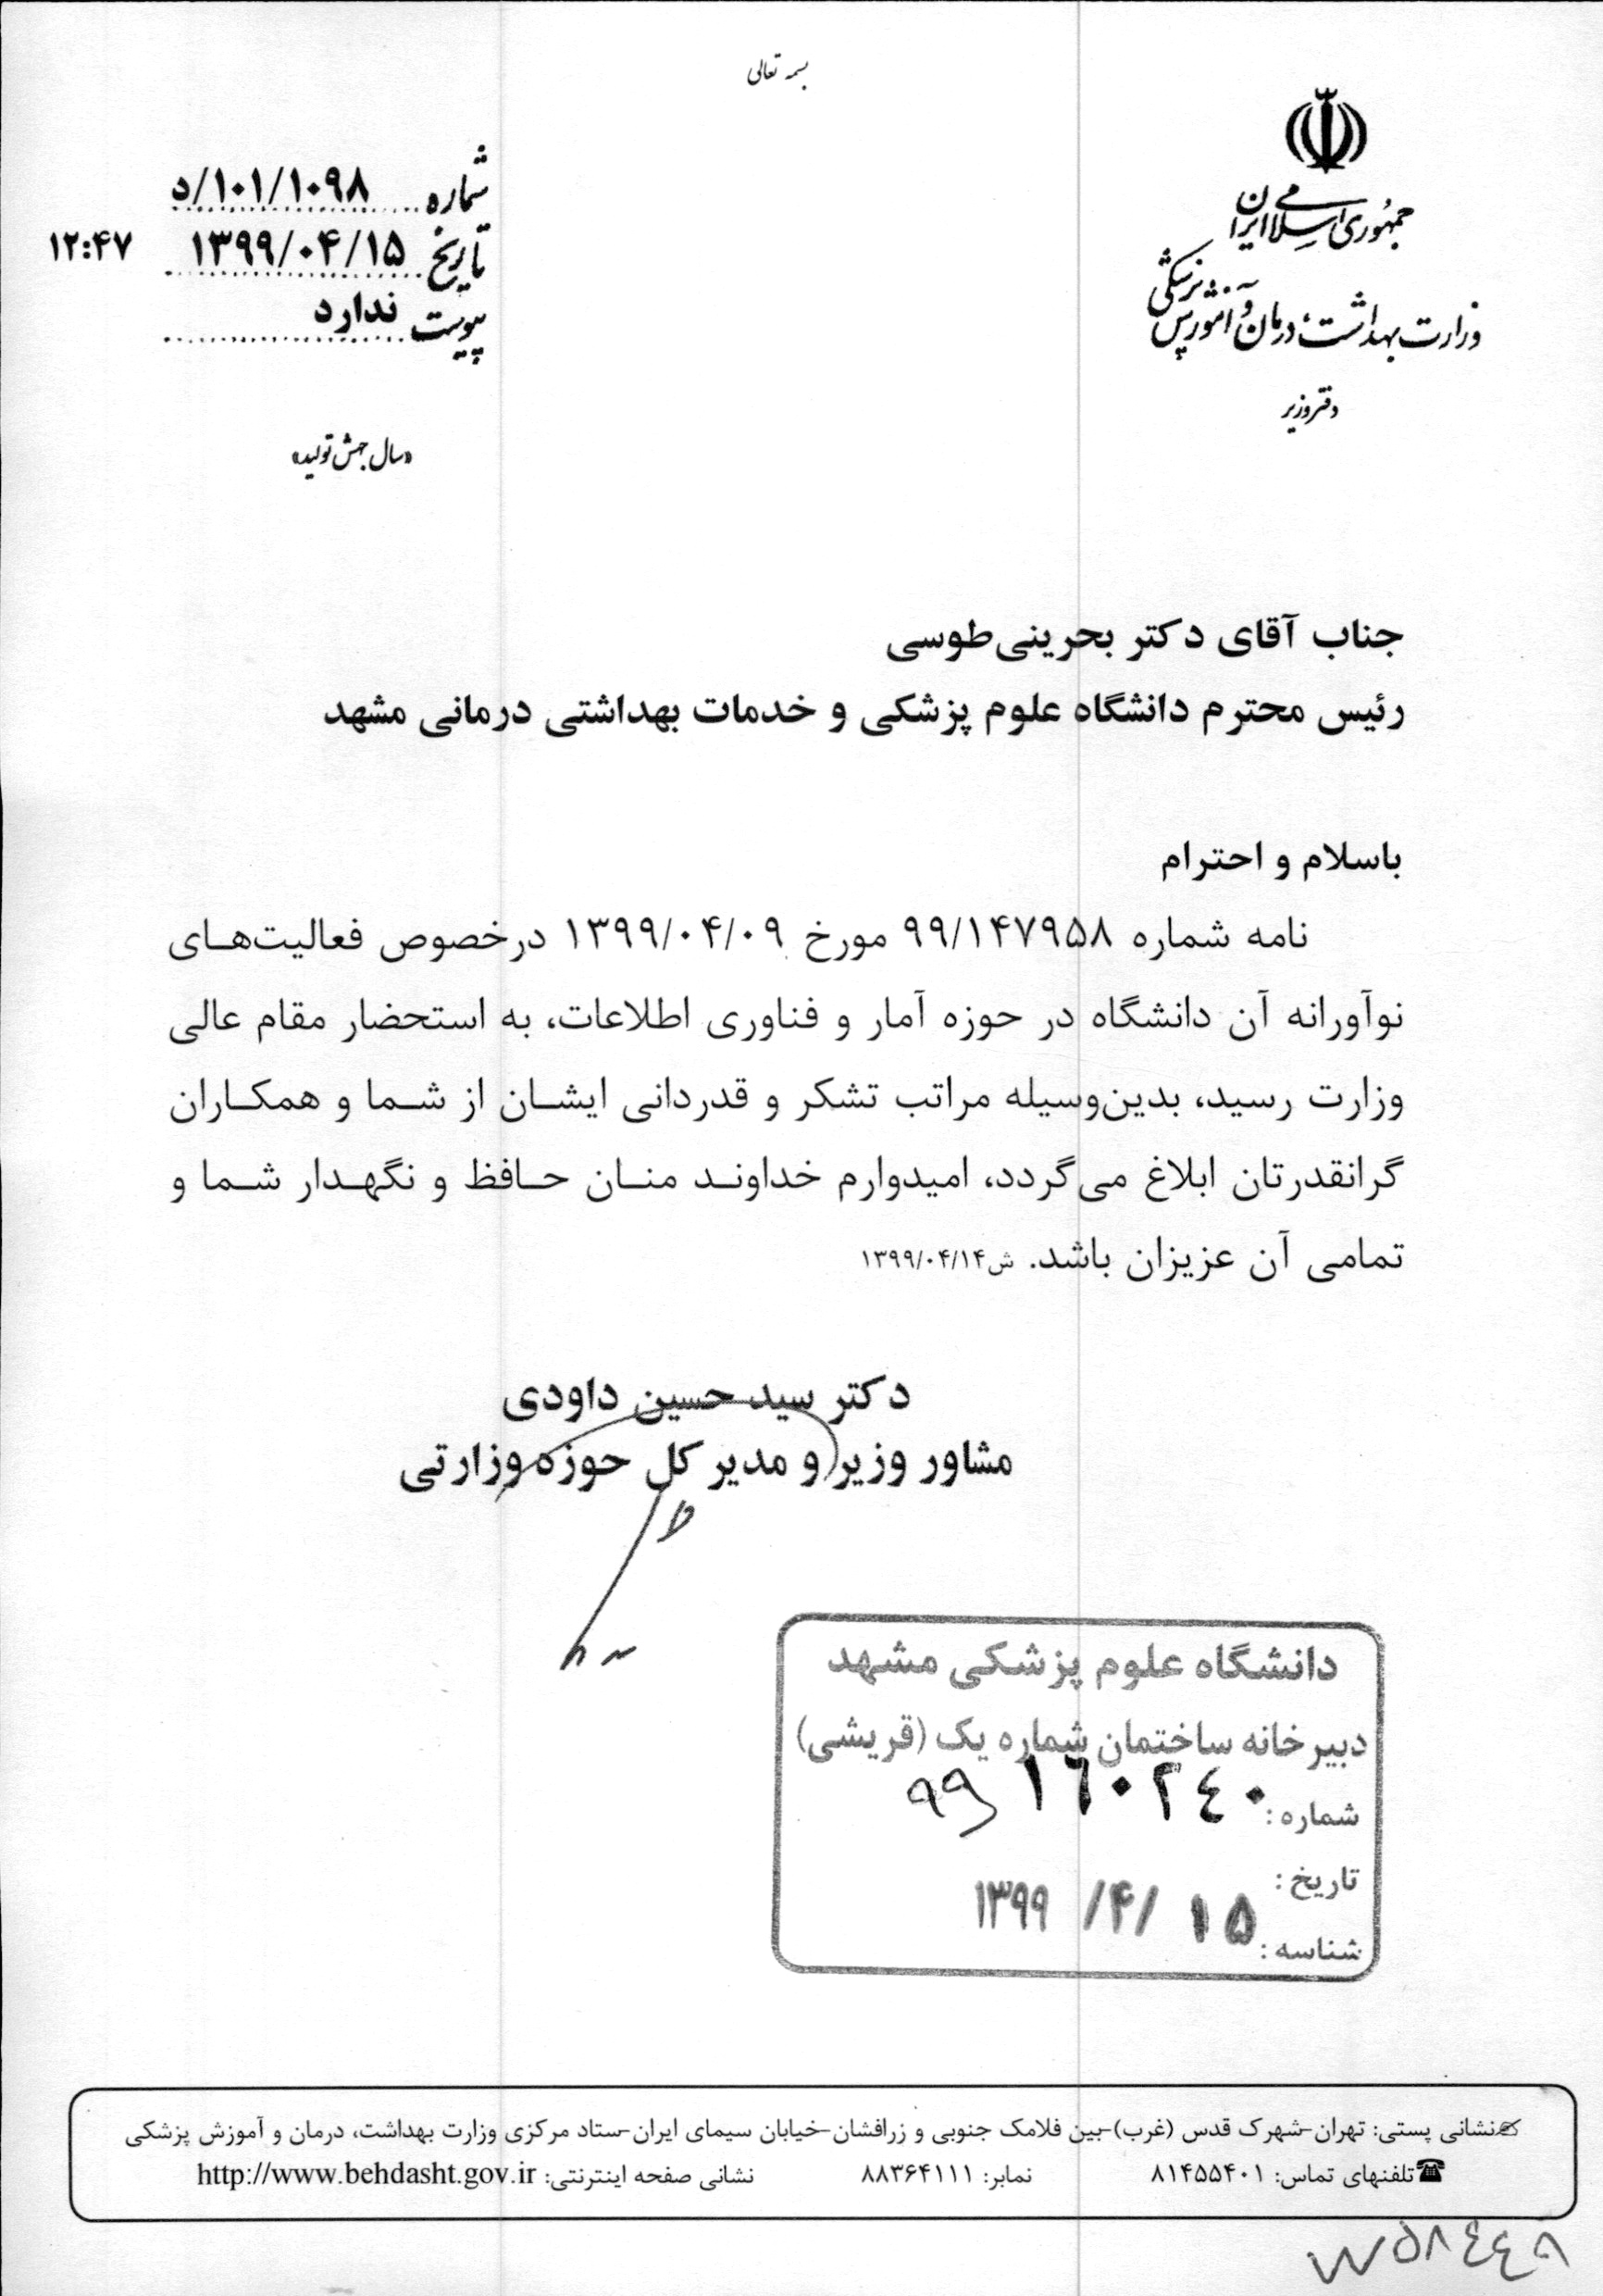 بسمه تعالی
جمهوری اسلامی ایران
وزارت بهداشت، درمان و آموزش پزشکی
دفتر وزیر
شماره ۱۰۱/۱۰۹۸/د
تاریخ ۱۳۹۹/۰۴/۱۵ ۱۲:۴۷
پیوست ندارد
«سال جهش تولید»
جناب آقای دکتر بحرینی‌طوسی
رئیس محترم دانشگاه علوم پزشکی و خدمات بهداشتی درمانی مشهد
باسلام و احترام
نامه شماره ۹۹/۱۴۷۹۵۸ مورخ ۱۳۹۹/۰۴/۰۹ درخصوص فعالیت‌های
نوآورانه آن دانشگاه در حوزه آمار و فناوری اطلاعات، به استحضار مقام عالی
وزارت رسید، بدین‌وسیله مراتب تشکر و قدردانی ایشان از شما و همکاران
گرانقدرتان ابلاغ می‌گردد، امیدوارم خداوند منان حافظ و نگهدار شما و
تمامی آن عزیزان باشد. ش۱۳۹۹/۰۴/۱۴
دکتر سید حسین داودی
مشاور وزیر و مدیر کل حوزه وزارتی
دانشگاه علوم پزشکی مشهد
دبیرخانه ساختمان شماره یک (قریشی)
شماره: ۹۹ ۱٦۰۲٤۰
تاریخ: ۱۳۹۹ /۴/ ۱۵
شناسه:
نشانی پستی: تهران-شهرک قدس (غرب)-بین فلامک جنوبی و زرافشان-خیابان سیمای ایران-ستاد مرکزی وزارت بهداشت، درمان و آموزش پزشکی
تلفنهای تماس: ۸۱۴۵۵۴۰۱ نمابر: ۸۸۳۶۴۱۱۱ نشانی صفحه اینترنتی: http://www.behdasht.gov.ir